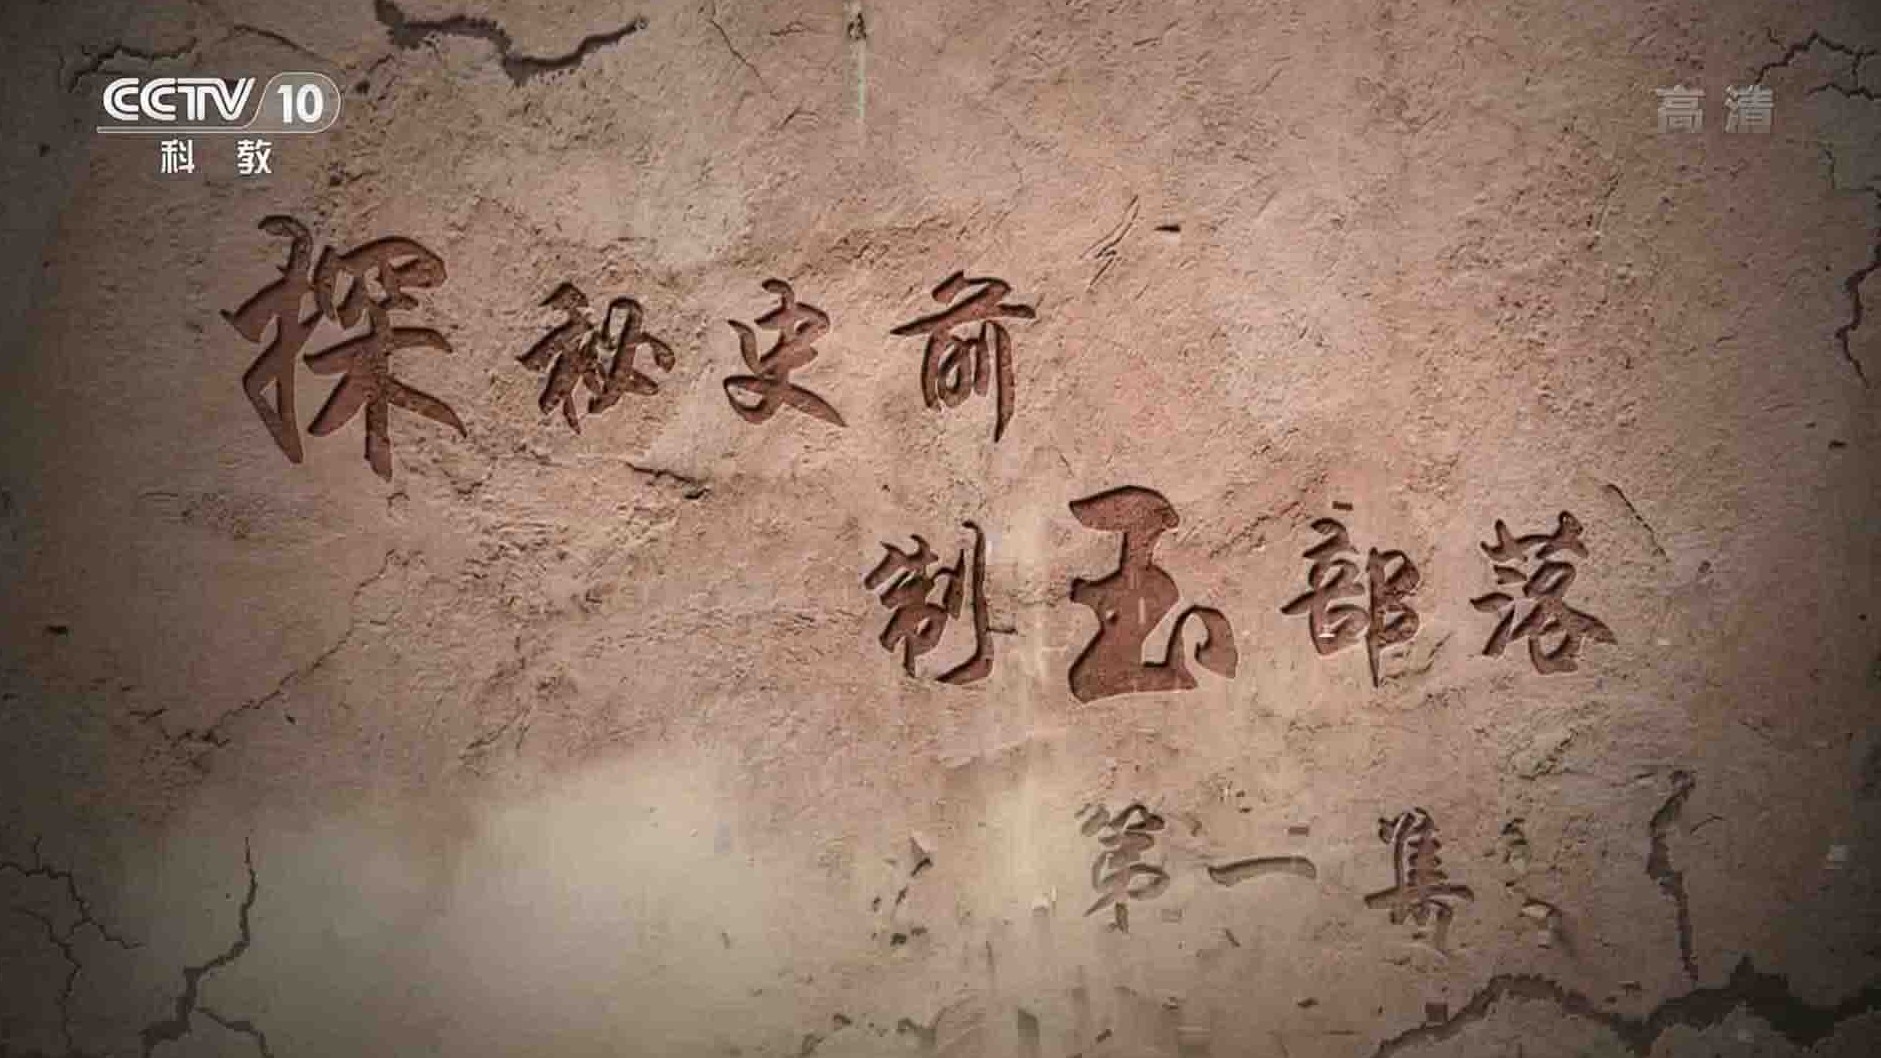 CCTV 10
科教
高清
探秘史前
制玉部落
第一集